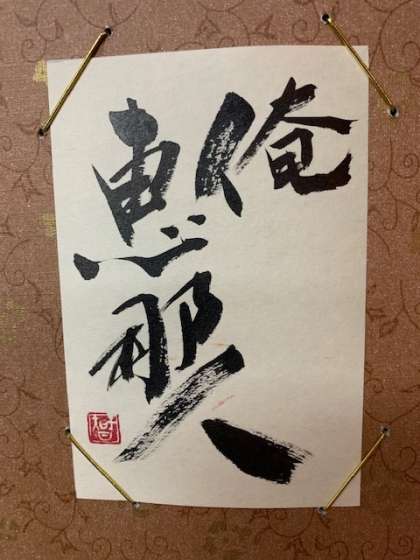 俺
恵那人